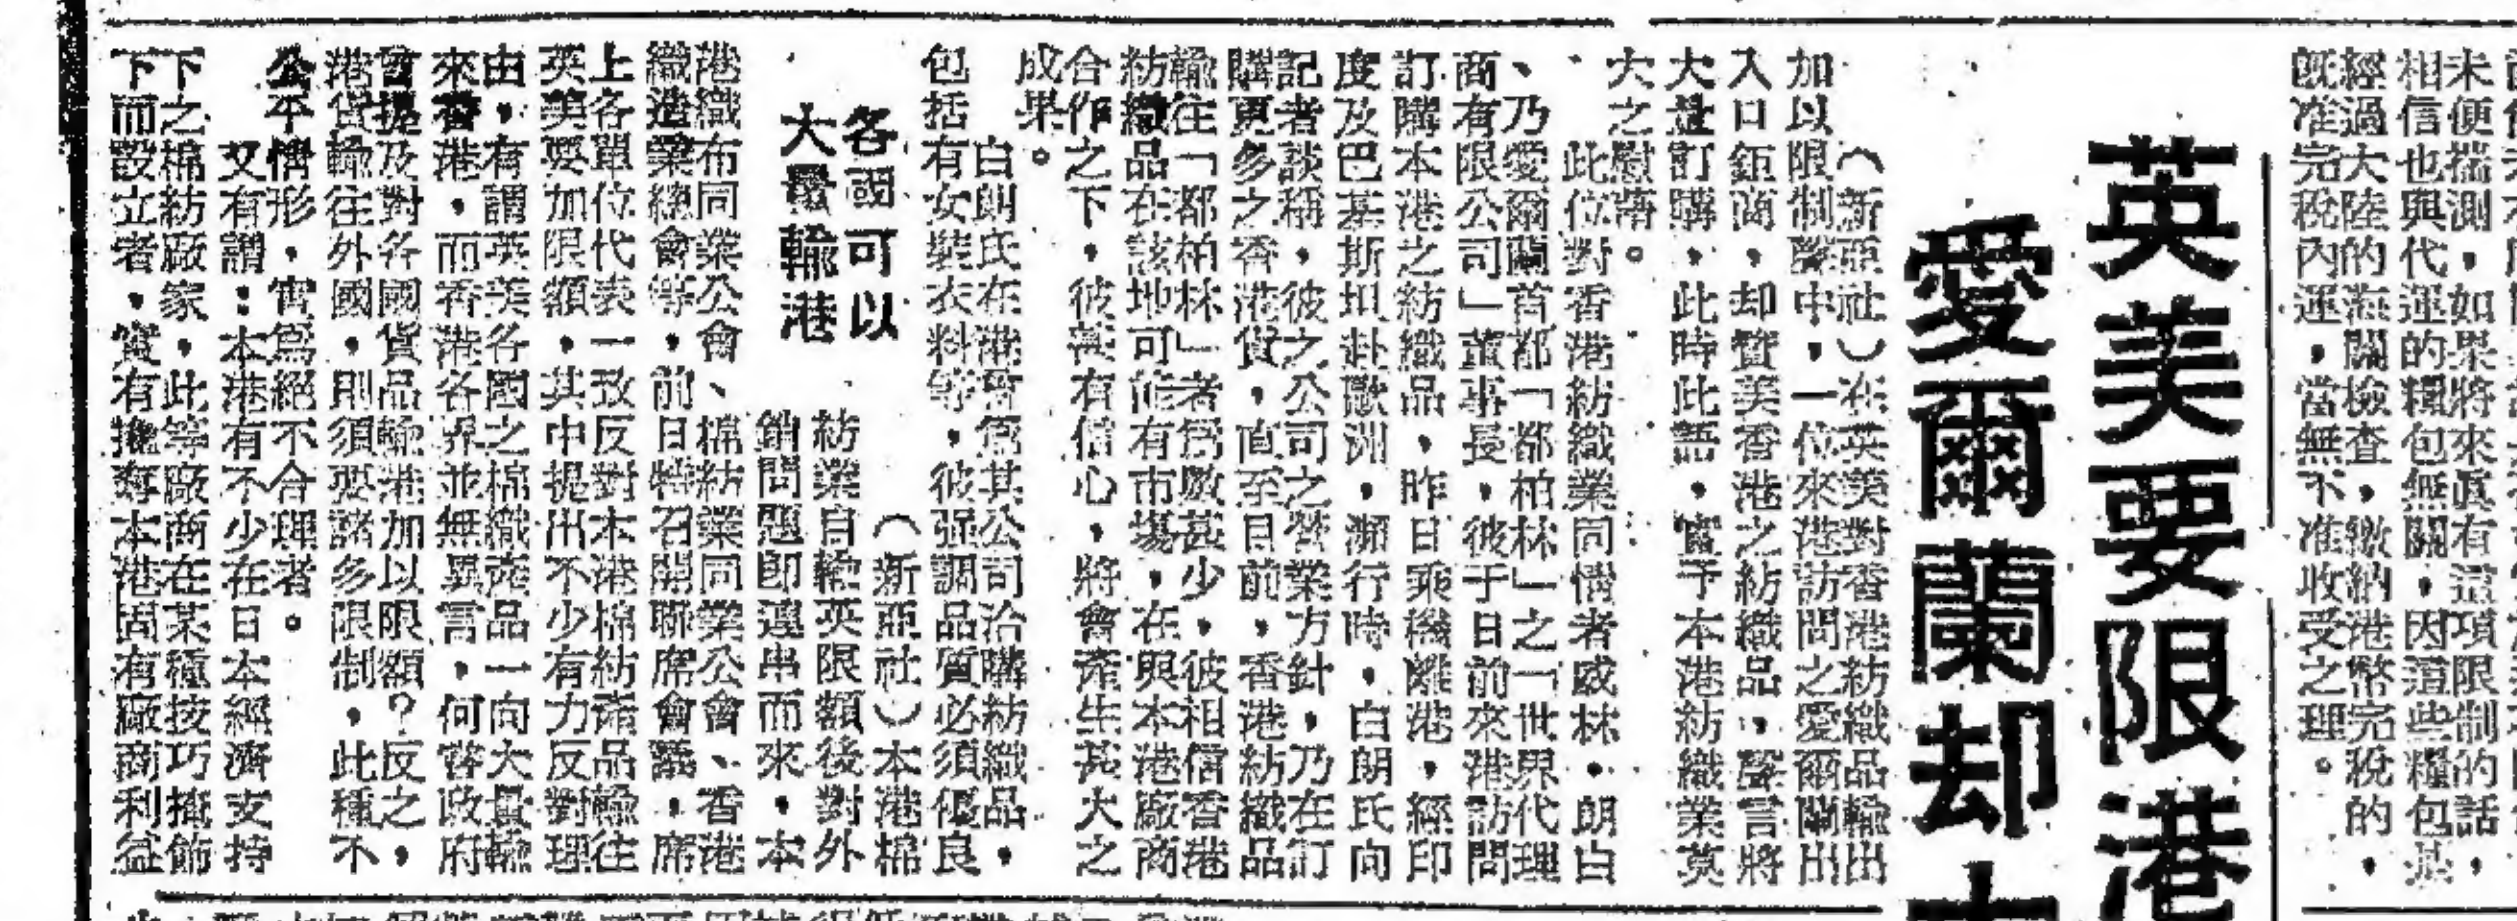 未便揣測，如果將來眞有這項限制的話，
相信也與代運的糧包無關，因這些糧包是
經過大陸的海關檢查，繳納港幣完稅的，
既准完稅內運，當無不准收受之理。
英美要限港
愛爾蘭却
（新亞社）在英美對香港紡織品輸出
加以限制聲中，一位來港訪問之愛爾蘭出
入口鉅商，却贊美香港之紡織品，聲言將
大量訂購，此時此語，實予本港紡織業莫
大之慰藉。
此位對香港紡織業同情者威林・朗白
、乃愛爾蘭首都「都柏林」之「世界代理
商有限公司」董事長，彼于日前來港訪問
訂購本港之紡織品，昨日乘機離港，經印
度及巴基斯坦赴歐洲，瀕行時，白朗氏向
記者談稱，彼之公司之營業方針，乃在訂
購更多之香港貨，直至目前，香港紡織品
輸往「都柏林」者爲數甚少，彼相信香港
紡織品在該地可能有市場，在與本港廠商
合作之下，彼甚有信心，將會產生甚大之
成果。
白朗氏在港曾爲其公司洽購紡織品，
包括有女裝衣料等，彼强調品質必須優良
各國可以
大量輸港
（新亞社）本港棉
紡業自輸英限額後對外
銷問題卽連串而來，本
港織布同業公會、棉紡業同業公會、香港
織造業總會等，前日特召開聯席會議，席
上各單位代表一致反對本港棉紡產品輸往
英美要加限額，其中提出不少有力反對理
由，有謂英美各國之棉織產品一向大量輸
來香港，而香港各界並無異言，何嘗政府
曾提及對各國貨品輸港加以限額？反之，
港貨輸往外國，則須要諸多限制，此種不
公平情形，實爲絕不合理者。
又有謂：本港有不少在日本經濟支持
下之棉紡廠家，此等廠商在某種技巧掩飾
下而設立者，實有攙奪本港固有廠商利益